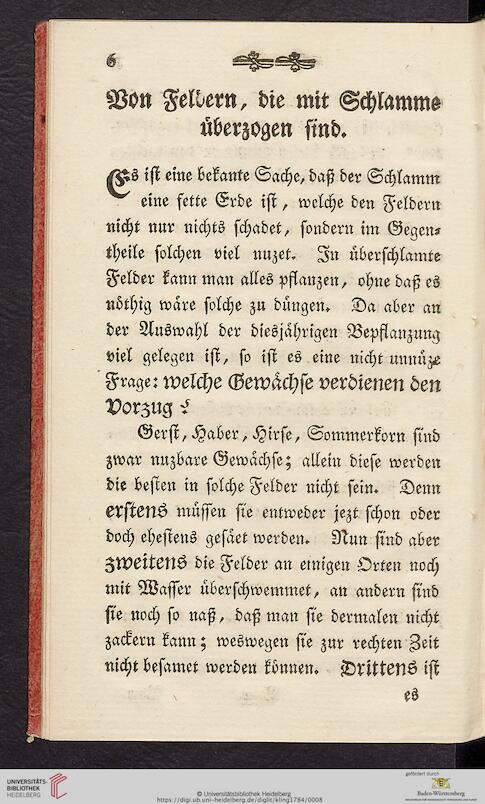 6
Von Feldern, die mit Schlamme
überzogen sind.
Es ist eine bekante Sache, daß der Schlamm
eine fette Erde ist, welche den Feldern
nicht nur nichts schadet, sondern im Gegen-
theile solchen viel nuzet. In überschlamte
Felder kann man alles pflanzen, ohne daß es
nöthig wäre solche zu düngen. Da aber an
der Auswahl der diesjährigen Bepflanzung
viel gelegen ist, so ist es eine nicht unnüze
Frage: welche Gewächse verdienen den
Vorzug?
Gerst, Haber, Hirse, Sommerkorn sind
zwar nuzbare Gewächse; allein diese werden
die besten in solche Felder nicht sein. Denn
erstens müssen sie entweder jezt schon oder
doch ehestens gesäet werden. Nun sind aber
zweitens die Felder an einigen Orten noch
mit Wasser überschwemmet, an andern sind
sie noch so naß, daß man sie dermalen nicht
zackern kann; weswegen sie zur rechten Zeit
nicht besamet werden können. Drittens ist
es
UNIVERSITÄTS-
BIBLIOTHEK
HEIDELBERG
© Universitätsbibliothek Heidelberg
https://digi.ub.uni-heidelberg.de/diglit/kling1784/0008
gefördert durch
Baden-Württemberg